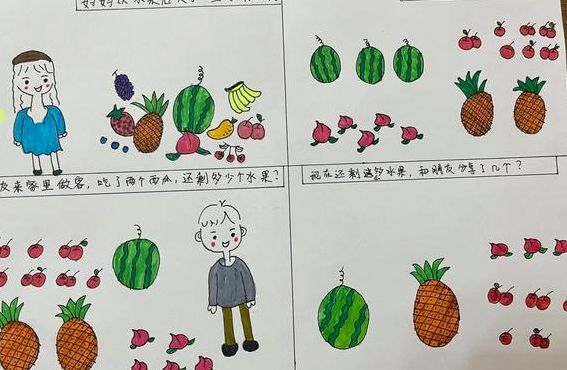 友来家里做客，吃了两个西瓜，还剩多少个水果？
现在还剩这些水果，和朋友分享了几个？